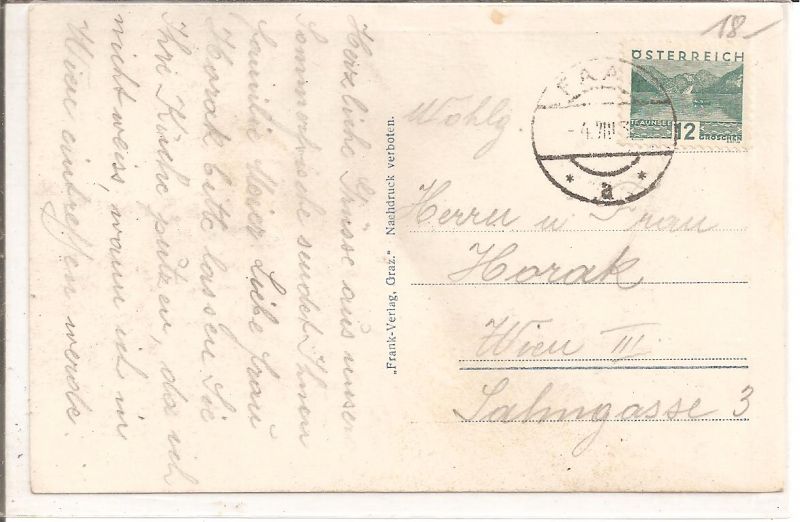 Herzliche Grüsse aus unser
Sommerfrische sendet Ihnen
Familie Meier Liebe Frau
Horak bitte lassen Sie
Ihre Küche putzen, da ich
nicht weiss, wann ich in
Wien eintreffen werde.
„Frank-Verlag, Graz." Nachdruck verboten.
18-
ÖSTERREICH
TRAUNSEE
12 GROSCHEN
FAA
-4.VIII.3
* a *
Wohlg
Herrn u Frau
Horak
Wien III
Salmgasse 3